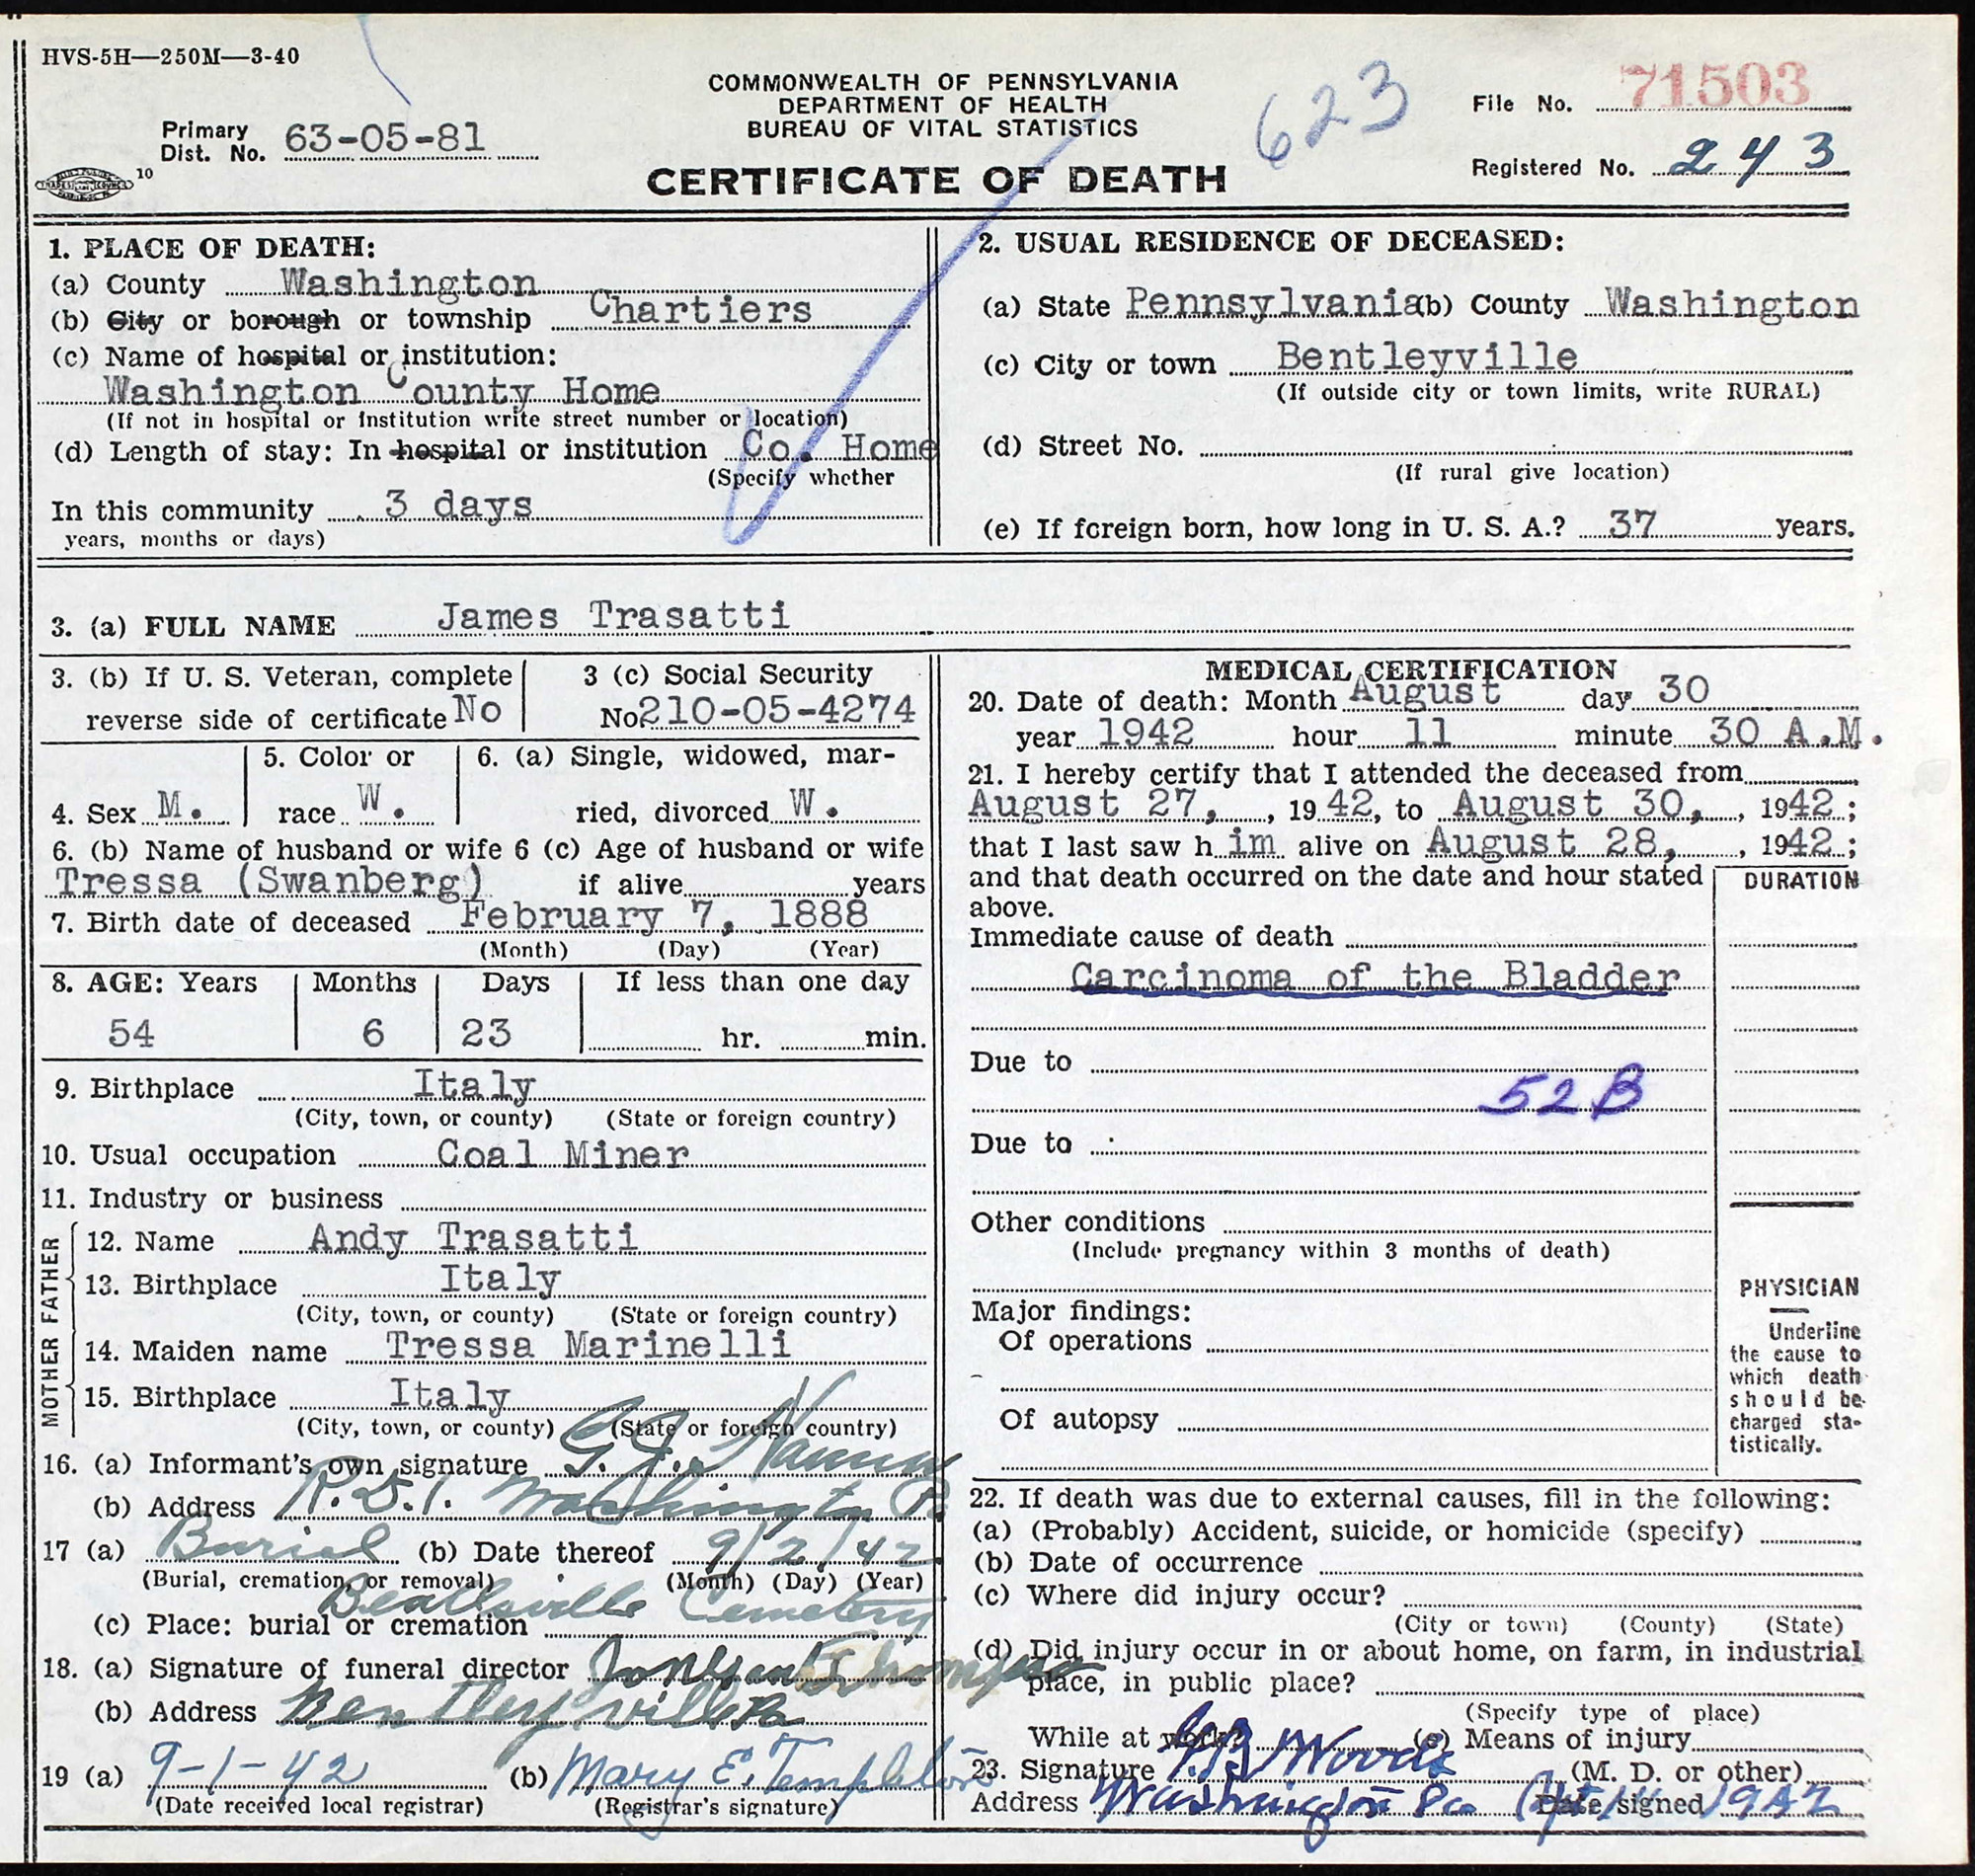 HVS-5H—250M—3-40
COMMONWEALTH OF PENNSYLVANIA
DEPARTMENT OF HEALTH
BUREAU OF VITAL STATISTICS
CERTIFICATE OF DEATH
623
File No. 71503
Registered No. 243
Primary
Dist. No. 63-05-81
10
1. PLACE OF DEATH:
(a) County Washington
(b) City or borough or township Chartiers
(c) Name of hospital or institution:
Washington County Home
(If not in hospital or institution write street number or location)
(d) Length of stay: In hospital or institution Co. Home
(Specify whether
In this community 3 days
years, months or days)
2. USUAL RESIDENCE OF DECEASED:
(a) State Pennsylvania (b) County Washington
(c) City or town Bentleyville
(If outside city or town limits, write RURAL)
(d) Street No.
(If rural give location)
(e) If foreign born, how long in U. S. A.? 37 years.
3. (a) FULL NAME James Trasatti
3. (b) If U. S. Veteran, complete
reverse side of certificate No
3 (c) Social Security
No. 210-05-4274
4. Sex M.
5. Color or
race W.
6. (a) Single, widowed, mar-
ried, divorced W.
6. (b) Name of husband or wife
Tressa (Swanberg)
6 (c) Age of husband or wife
if alive years
7. Birth date of deceased February 7, 1888
(Month) (Day) (Year)
8. AGE: Years Months Days If less than one day
54 6 23 hr. min.
9. Birthplace Italy
(City, town, or county) (State or foreign country)
10. Usual occupation Coal Miner
11. Industry or business
FATHER
12. Name Andy Trasatti
13. Birthplace Italy
(City, town, or county) (State or foreign country)
MOTHER
14. Maiden name Tressa Marinelli
15. Birthplace Italy
(City, town, or county) (State or foreign country)
16. (a) Informant's own signature G. J.
(b) Address R.D.1. Washington Pa
17 (a) Burial (b) Date thereof 9/2/42
(Burial, cremation, or removal) (Month) (Day) (Year)
Beallsville Cemetery
(c) Place: burial or cremation
18. (a) Signature of funeral director
(b) Address Bentleyville Pa
19 (a) 9-1-42 (b) Mary E. Templeton
(Date received local registrar) (Registrar's signature)
MEDICAL CERTIFICATION
20. Date of death: Month August day 30
year 1942 hour 11 minute 30 A.M.
21. I hereby certify that I attended the deceased from
August 27, , 1942, to August 30, , 1942;
that I last saw him alive on August 28, , 1942;
and that death occurred on the date and hour stated
above.
DURATION
Immediate cause of death
Carcinoma of the Bladder
Due to
52B
Due to
Other conditions
(Include pregnancy within 3 months of death)
Major findings:
Of operations
Of autopsy
PHYSICIAN
Underline
the cause to
which death
should be
charged sta-
tistically.
22. If death was due to external causes, fill in the following:
(a) (Probably) Accident, suicide, or homicide (specify)
(b) Date of occurrence
(c) Where did injury occur?
(City or town) (County) (State)
(d) Did injury occur in or about home, on farm, in industrial
place, in public place?
(Specify type of place)
While at work? (e) Means of injury
23. Signature Woods (M. D. or other)
Address Washington Pa Date signed 1942